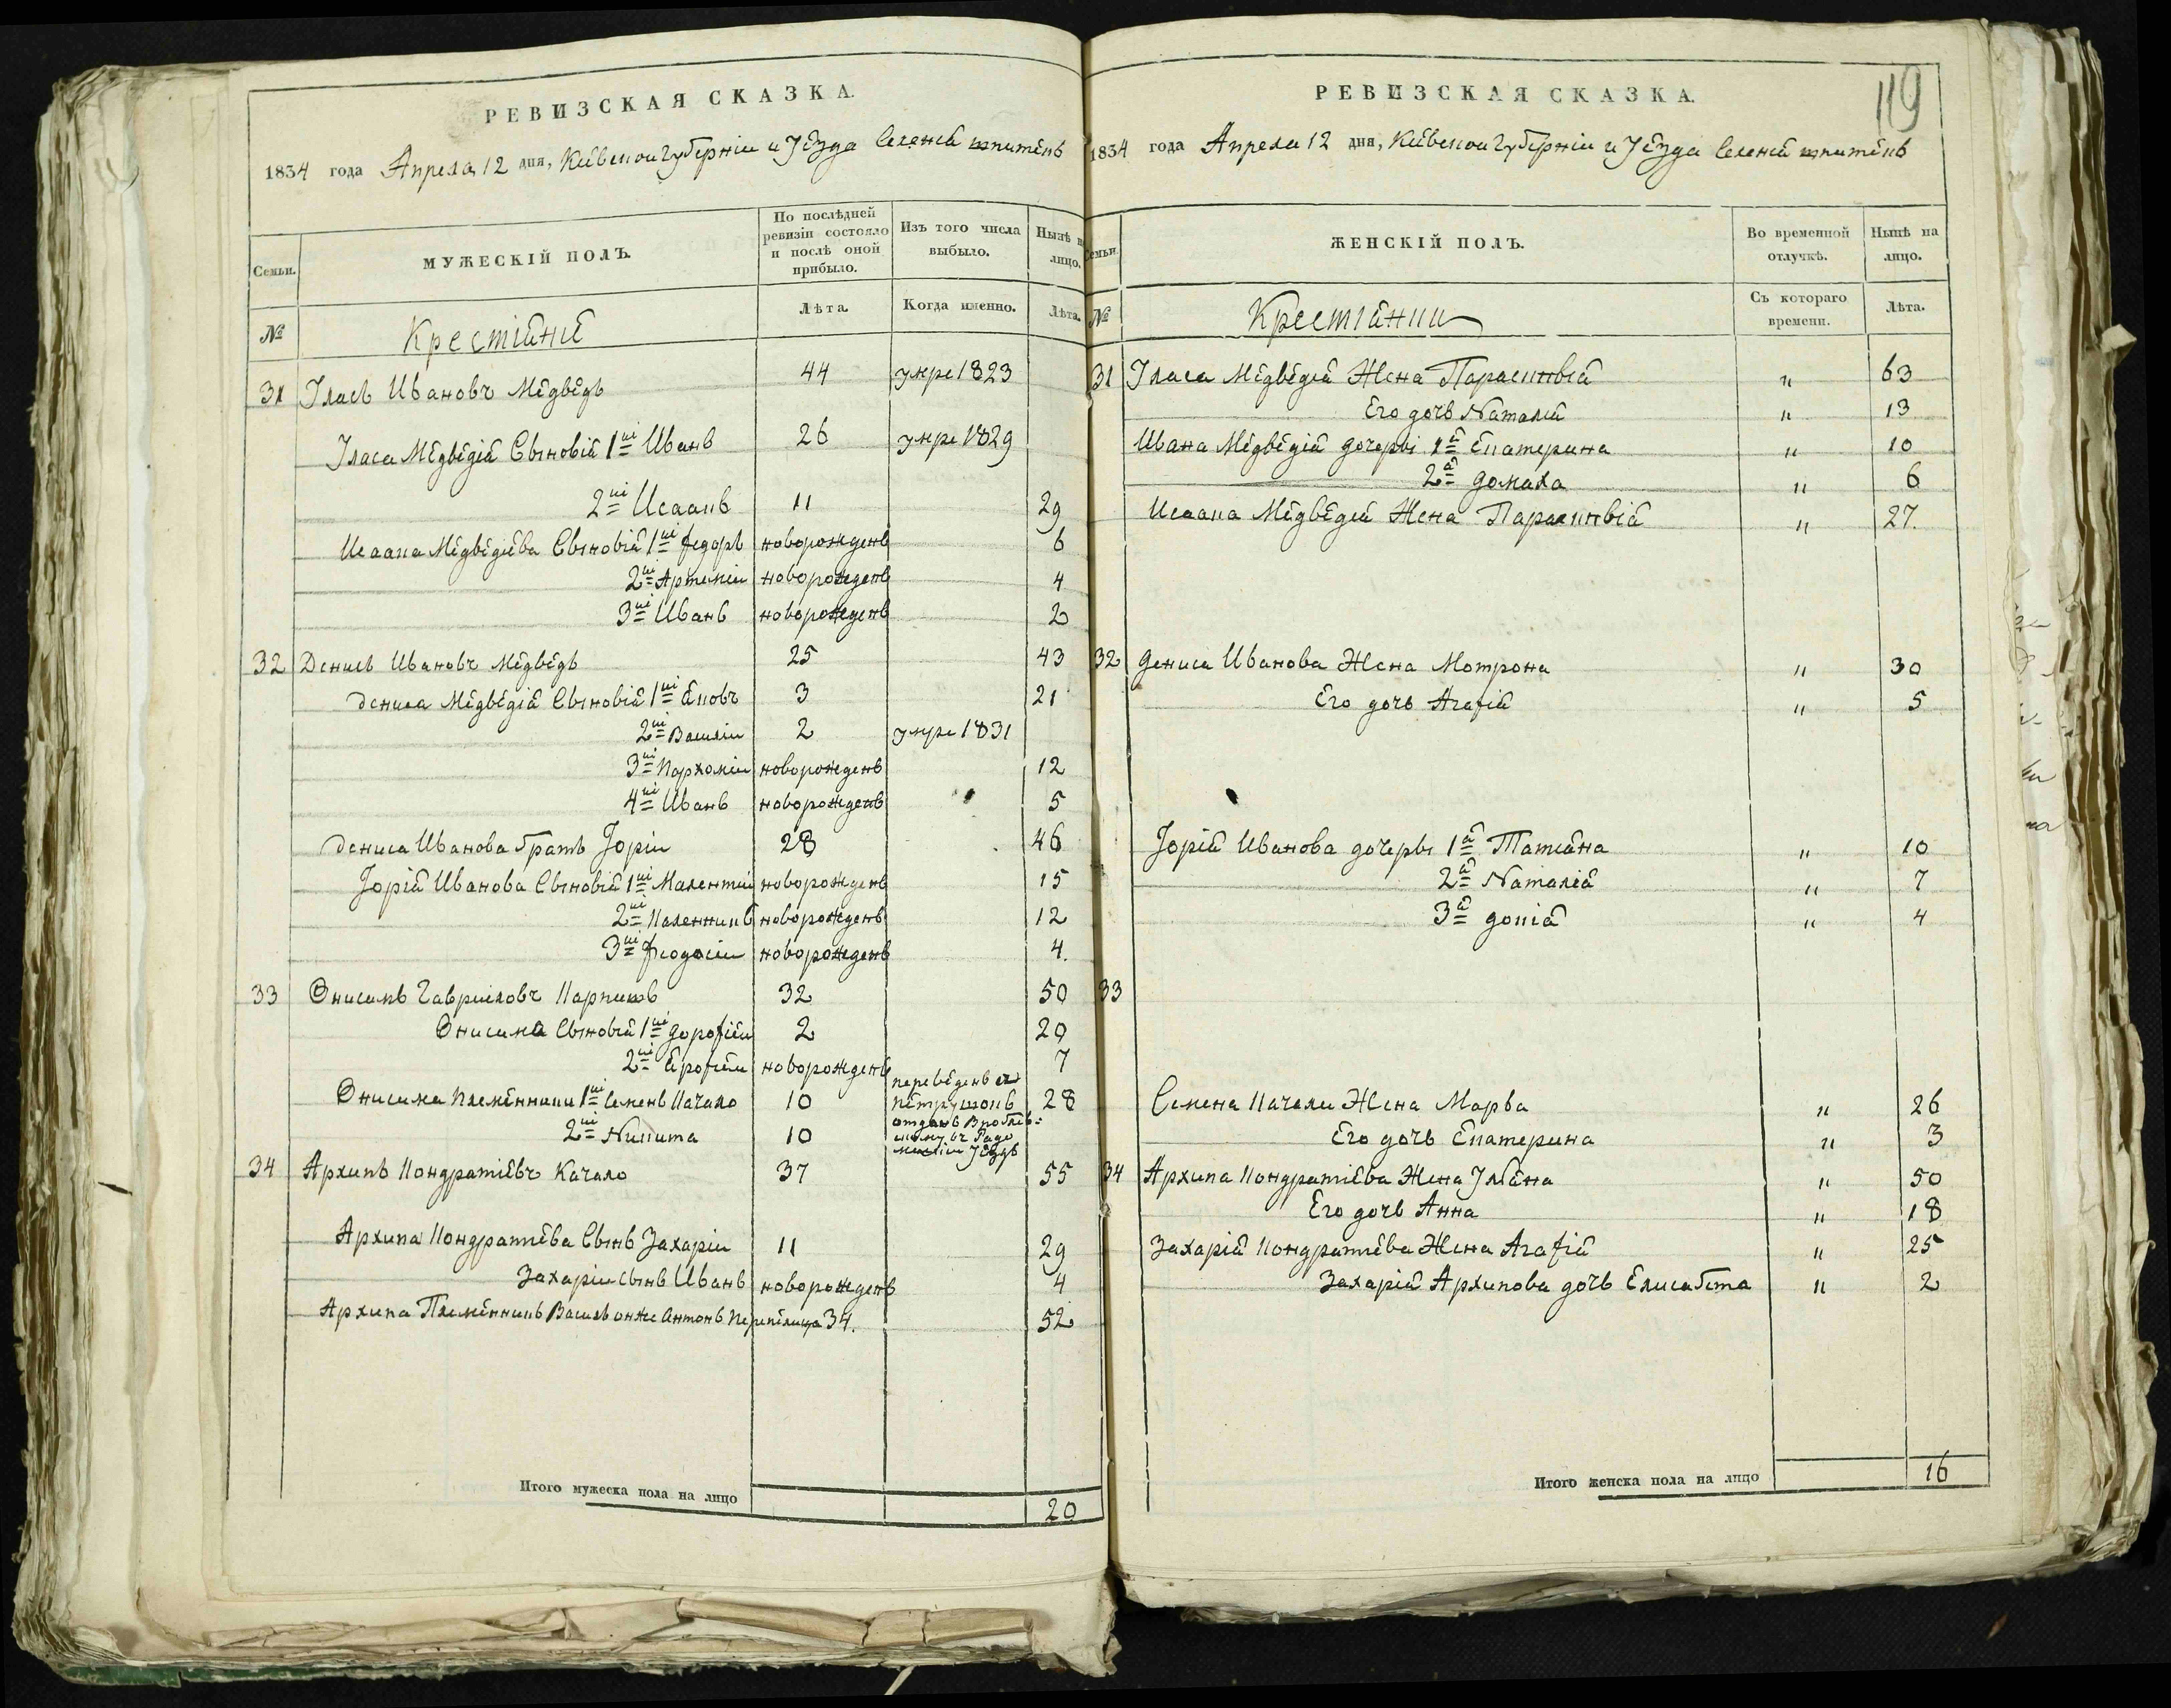 РЕВИЗСКАЯ СКАЗКА.
1834 года Апреля 12 дня, Кіевской губерніи и Уезда Селеніе
Семьи. МУЖЕСКІЙ ПОЛЪ. По послѣдней ревизіи состояло и послѣ оной прибыло. Изъ того числа выбыло. Нынѣ н лицо.
№ Крестіяне Лѣта. Когда именно. Лѣта.
31 Улась Ивановъ Медведь 44 умре 1823
Уласа Медведія Сыновія 1й Иванъ 26 умре 1829
2й Исаакъ 11 29
Исаака Медведіева Сыновія 1й Федоръ новорожденъ 6
2й Артемій новорожденъ 4
3й Иванъ новорожденъ 2
32 Денисъ Ивановъ Медведь 25 43
Дениса Медведія Сыновія 1й Яковъ 3 21
2й Василій 2 умре 1831
3й Пархомій новорожденъ 12
4й Иванъ новорожденъ 5
Дениса Иванова братъ Юрій 28 46
Юрія Иванова Сыновія 1й новорожденъ 15
2й новорожденъ 12
3й Феодосій новорожденъ 4.
33 Онисимъ Гавриловъ 32 50
Онисима Сыновія 1й Дорофей 2 20
2й Ерофей новорожденъ 7
Онисима Племенники 1й Семенъ Качало 10 переведенъ 28
2й Никита 10 отданъ
Уездъ
34 Архипъ Кондратіевъ Качало 37 55
Архипа Кондратіева Сынъ Захарій 11 29
Захарія Сынъ Иванъ новорожденъ 4
Архипа Племенникъ Василь онже Антонъ Перепелица 34. 52
Итого мужеска пола на лицо 20
119
РЕВИЗСКАЯ СКАЗКА.
1834 года Апреля 12 дня, Кіевской губерніи и Уезда Селеніе
Семьи. ЖЕНСКІЙ ПОЛЪ. Во временной отлучкѣ. Нынѣ на лицо.
№ Крестіянки Съ котораго времени. Лѣта.
31 Уласа Медведія Жена Параскивія " 63
Его дочь Наталія " 13
Ивана Медведія дочеры 1я Екатерина " 10
2я Домаха " 6
Исаака Медведія Жена Параскивія " 27.
32 Дениса Иванова Жена Мотрона " 30
Его дочь Агафія " 5
Юрія Иванова дочеры 1я Татіяна " 10
2я Наталія " 7
3я " 4
33
Семена Качали Жена Марва " 26
Его дочь Екатерина " 3
34 Архипа Кондратіева Жена Уляна " 50
Его дочь Анна " 18
Захарія Кондратіева Жена Агафія " 25
Захарія Архипова дочь Елисавета " 2
Итого женска пола на лицо 16